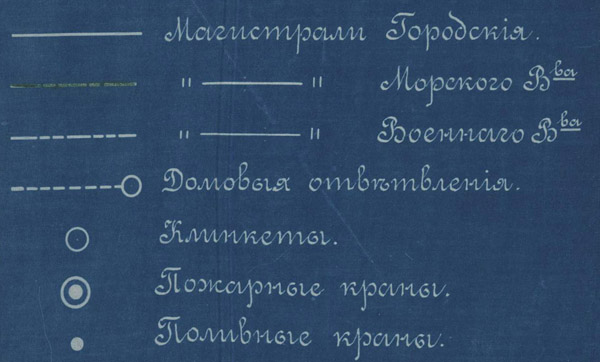 Магистрали Городскія.
" — " Морского Вва
" — " Военнаго Вва
Домовыя отвѣтвленія.
Клинкеты.
Пожарные краны.
Поливные краны.